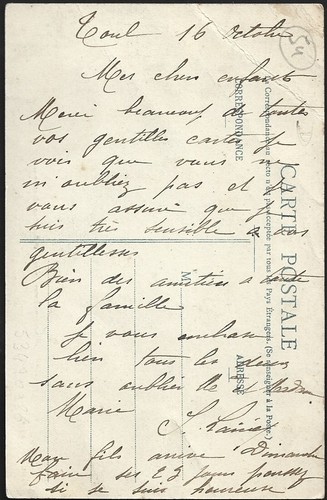 Toul 16 octobre
54
Mes chers enfants
Merci beaucoup de toutes
vos gentilles cartes je
vois que vous ne
m'oubliez pas et je
vous assure que je
suis très sensible à vos
gentillesses
Bien des amitiés à toute
la famille
Je vous embrasse
bien tous les deux
sans oublier
Marie
Mon fils arrive Dimanche
faire ses 23 jours
si je suis heureuse
CARTE POSTALE
(La Correspondance au recto n'est pas acceptée par tous les Pays Étrangers. (Se renseigner à la Poste.)
CORRESPONDANCE
ADRESSE
M